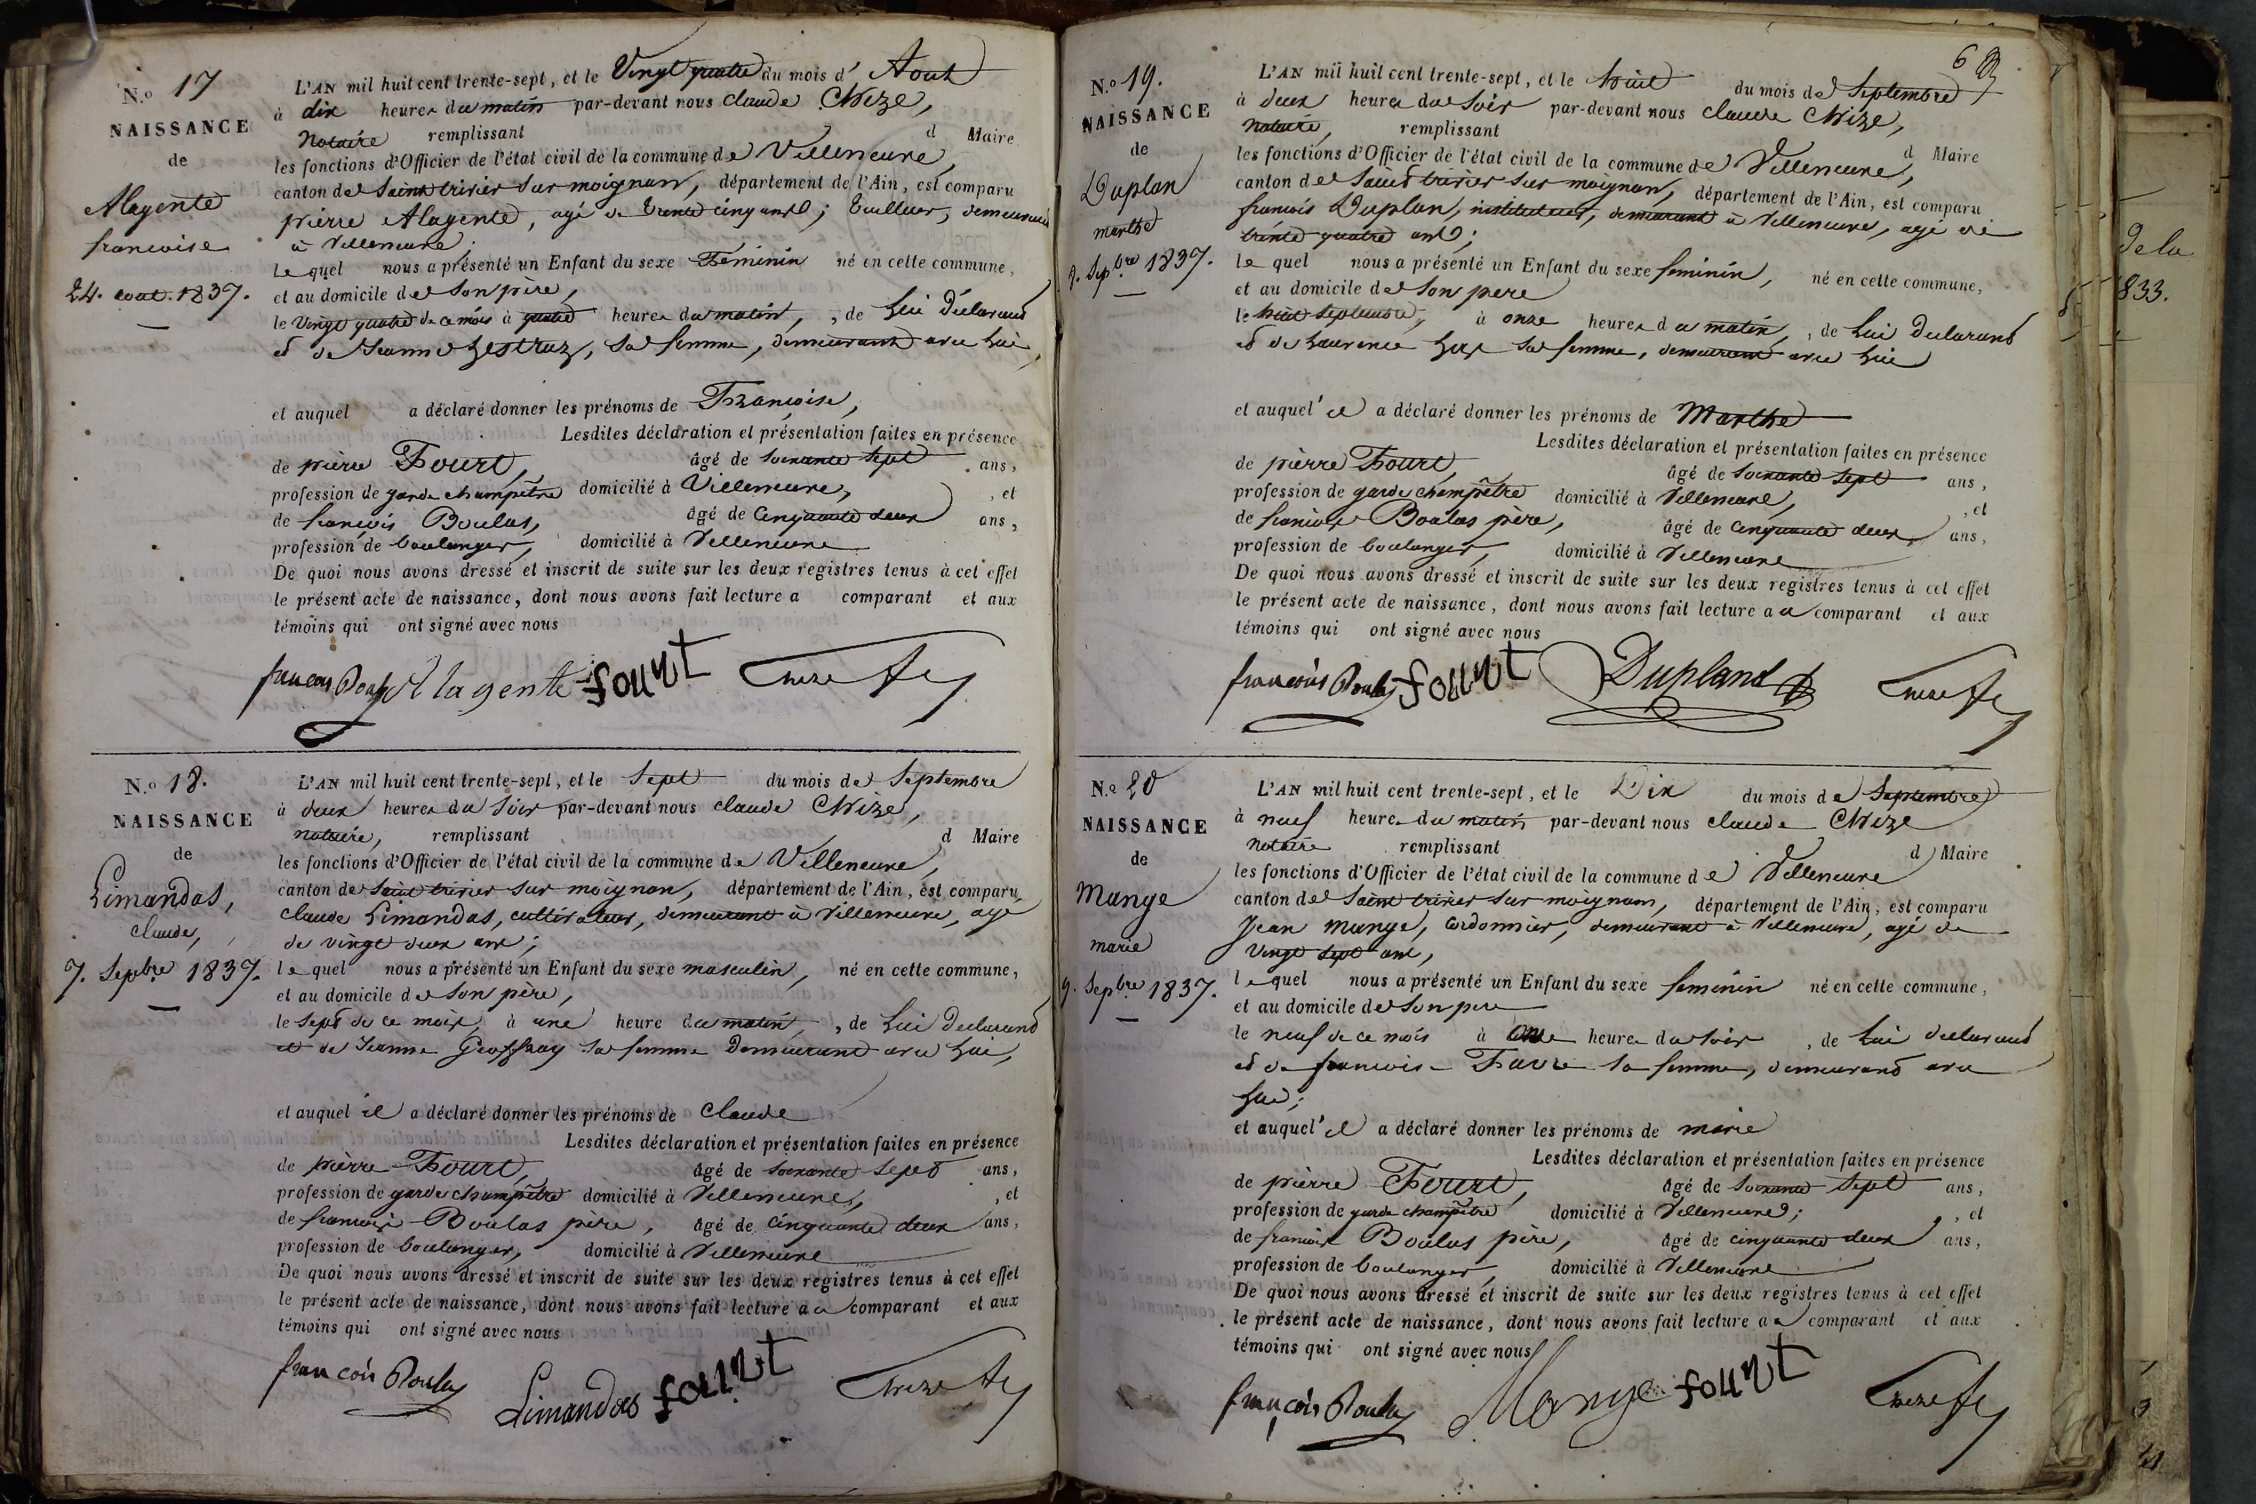 N.o 17
NAISSANCE
de
Alagente
francoise
24. aout. 1837.
L'AN mil huit cent trente-sept, et le Vingt quatre du mois d' Aout
à dix heures du matin par-devant nous claude Chize,
Notaire remplissant d Maire
les fonctions d'Officier de l'état civil de la commune de Villeneuve,
canton de Saint trivier sur moignans, département de l'Ain, est comparu
pierre Alagente, agé de trente cinq ans; tailleur, demeurant
à Villeneuve.
Le quel nous a présenté un Enfant du sexe Féminin né en cette commune,
et au domicile de Son père,
le Vingt quatre de ce mois à quatre heures du matin, , de Lui Déclarant
et de Jeanne , sa femme, demeurant avec Lui,
et auquel a déclaré donner les prénoms de Francoise,
Lesdites déclaration et présentation faites en présence
de pierre Fourt, âgé de Soixante Sept ans,
profession de garde champêtre domicilié à Villeneuve, , et
de françois Boulas, âgé de Cinquante deux ans,
profession de boulanger, domicilié à Villeneuve
De quoi nous avons dressé et inscrit de suite sur les deux registres tenus à cet effet
le présent acte de naissance, dont nous avons fait lecture a comparant et aux
témoins qui ont signé avec nous
françois Boulas Alagente fourt Chize
N.o 18.
NAISSANCE
de
Limandas,
claude,
7. Sepbre 1837.
L'AN mil huit cent trente-sept, et le Sept du mois de Septembre
à deux heures du Soir par-devant nous claude Chize,
notaire, remplissant d Maire
les fonctions d'Officier de l'état civil de la commune de Villeneuve,
canton de Saint trivier sur moignans, département de l'Ain, est comparu
claude Limandas, cultivateur, demeurant à Villeneuve, agé
de vingt deux ans;
le quel nous a présenté un Enfant du sexe masculin, né en cette commune,
et au domicile de Son père,
le Sept de ce mois, à une heure du matin, , de Lui Declarant
et de Jeanne Geoffray sa femme Demeurant avec Lui,
et auquel il a déclaré donner les prénoms de claude
Lesdites déclaration et présentation faites en présence
de pierre Fourt, âgé de soixante Sept ans,
profession de garde champêtre domicilié à Villeneuve, , et
de françois Boulas père, âgé de cinquante deux ans,
profession de boulanger, domicilié à Villeneuve
De quoi nous avons dressé et inscrit de suite sur les deux registres tenus à cet effet
le présent acte de naissance, dont nous avons fait lecture au comparant et aux
témoins qui ont signé avec nous
françois Boulas Limandas fourt Chize
6
N.o 19.
NAISSANCE
de
Duplan
marthe
9. Sepbre 1837.
L'AN mil huit cent trente-sept, et le huit du mois de Septembre
à deux heures du Soir par-devant nous claude Chize,
notaire, remplissant d Maire
les fonctions d'Officier de l'état civil de la commune de Villeneuve,
canton de Saint trivier sur moignans, département de l'Ain, est comparu
francois Duplan, instituteur, demeurant à Villeneuve, agé de
trente quatre ans;
le quel nous a présenté un Enfant du sexe feminin, né en cette commune,
et au domicile de Son pere
le huit septembre, à onze heures du matin, , de Lui Declarant
et de Laurence sa femme, demeurant avec Lui
et auquel il a déclaré donner les prénoms de Marthe
Lesdites déclaration et présentation faites en présence
de pierre Fourt, âgé de soixante Sept ans,
profession de garde champêtre domicilié à Villeneuve, , et
de francois Boulas père, âgé de cinquante deux ans,
profession de boulanger, domicilié à Villeneuve
De quoi nous avons dressé et inscrit de suite sur les deux registres tenus à cet effet
le présent acte de naissance, dont nous avons fait lecture au comparant et aux
témoins qui ont signé avec nous
françois Boulas fourt Dupland Chize
N.o 20
NAISSANCE
de
Mange
marie
9. Sepbre 1837.
L'AN mil huit cent trente-sept, et le Dix du mois de Septembre
à neuf heures du matin par-devant nous claude Chize
notaire remplissant d Maire
les fonctions d'Officier de l'état civil de la commune de Villeneuve
canton de Saint trivier sur moignans, département de l'Ain, est comparu
Jean Mange, Cordonnier, demeurant à Villeneuve, agé de
Vingt sept ans,
le quel nous a présenté un Enfant du sexe feminin né en cette commune,
et au domicile de Son pere
le neuf de ce mois à onze heures du Soir , de Lui declarant
et de francoise Favre sa femme, demeurant avec
Lui;
et auquel il a déclaré donner les prénoms de marie
Lesdites déclaration et présentation faites en présence
de pierre Fourt, âgé de Soixante Sept ans,
profession de garde champêtre domicilié à Villeneuve; , et
de francois Boulas père, âgé de cinquante deux ans,
profession de boulanger, domicilié à Villeneuve
De quoi nous avons dressé et inscrit de suite sur les deux registres tenus à cet effet
le présent acte de naissance, dont nous avons fait lecture au comparant et aux
témoins qui ont signé avec nous
françois Boulas Mange fourt Chize
de la
833.